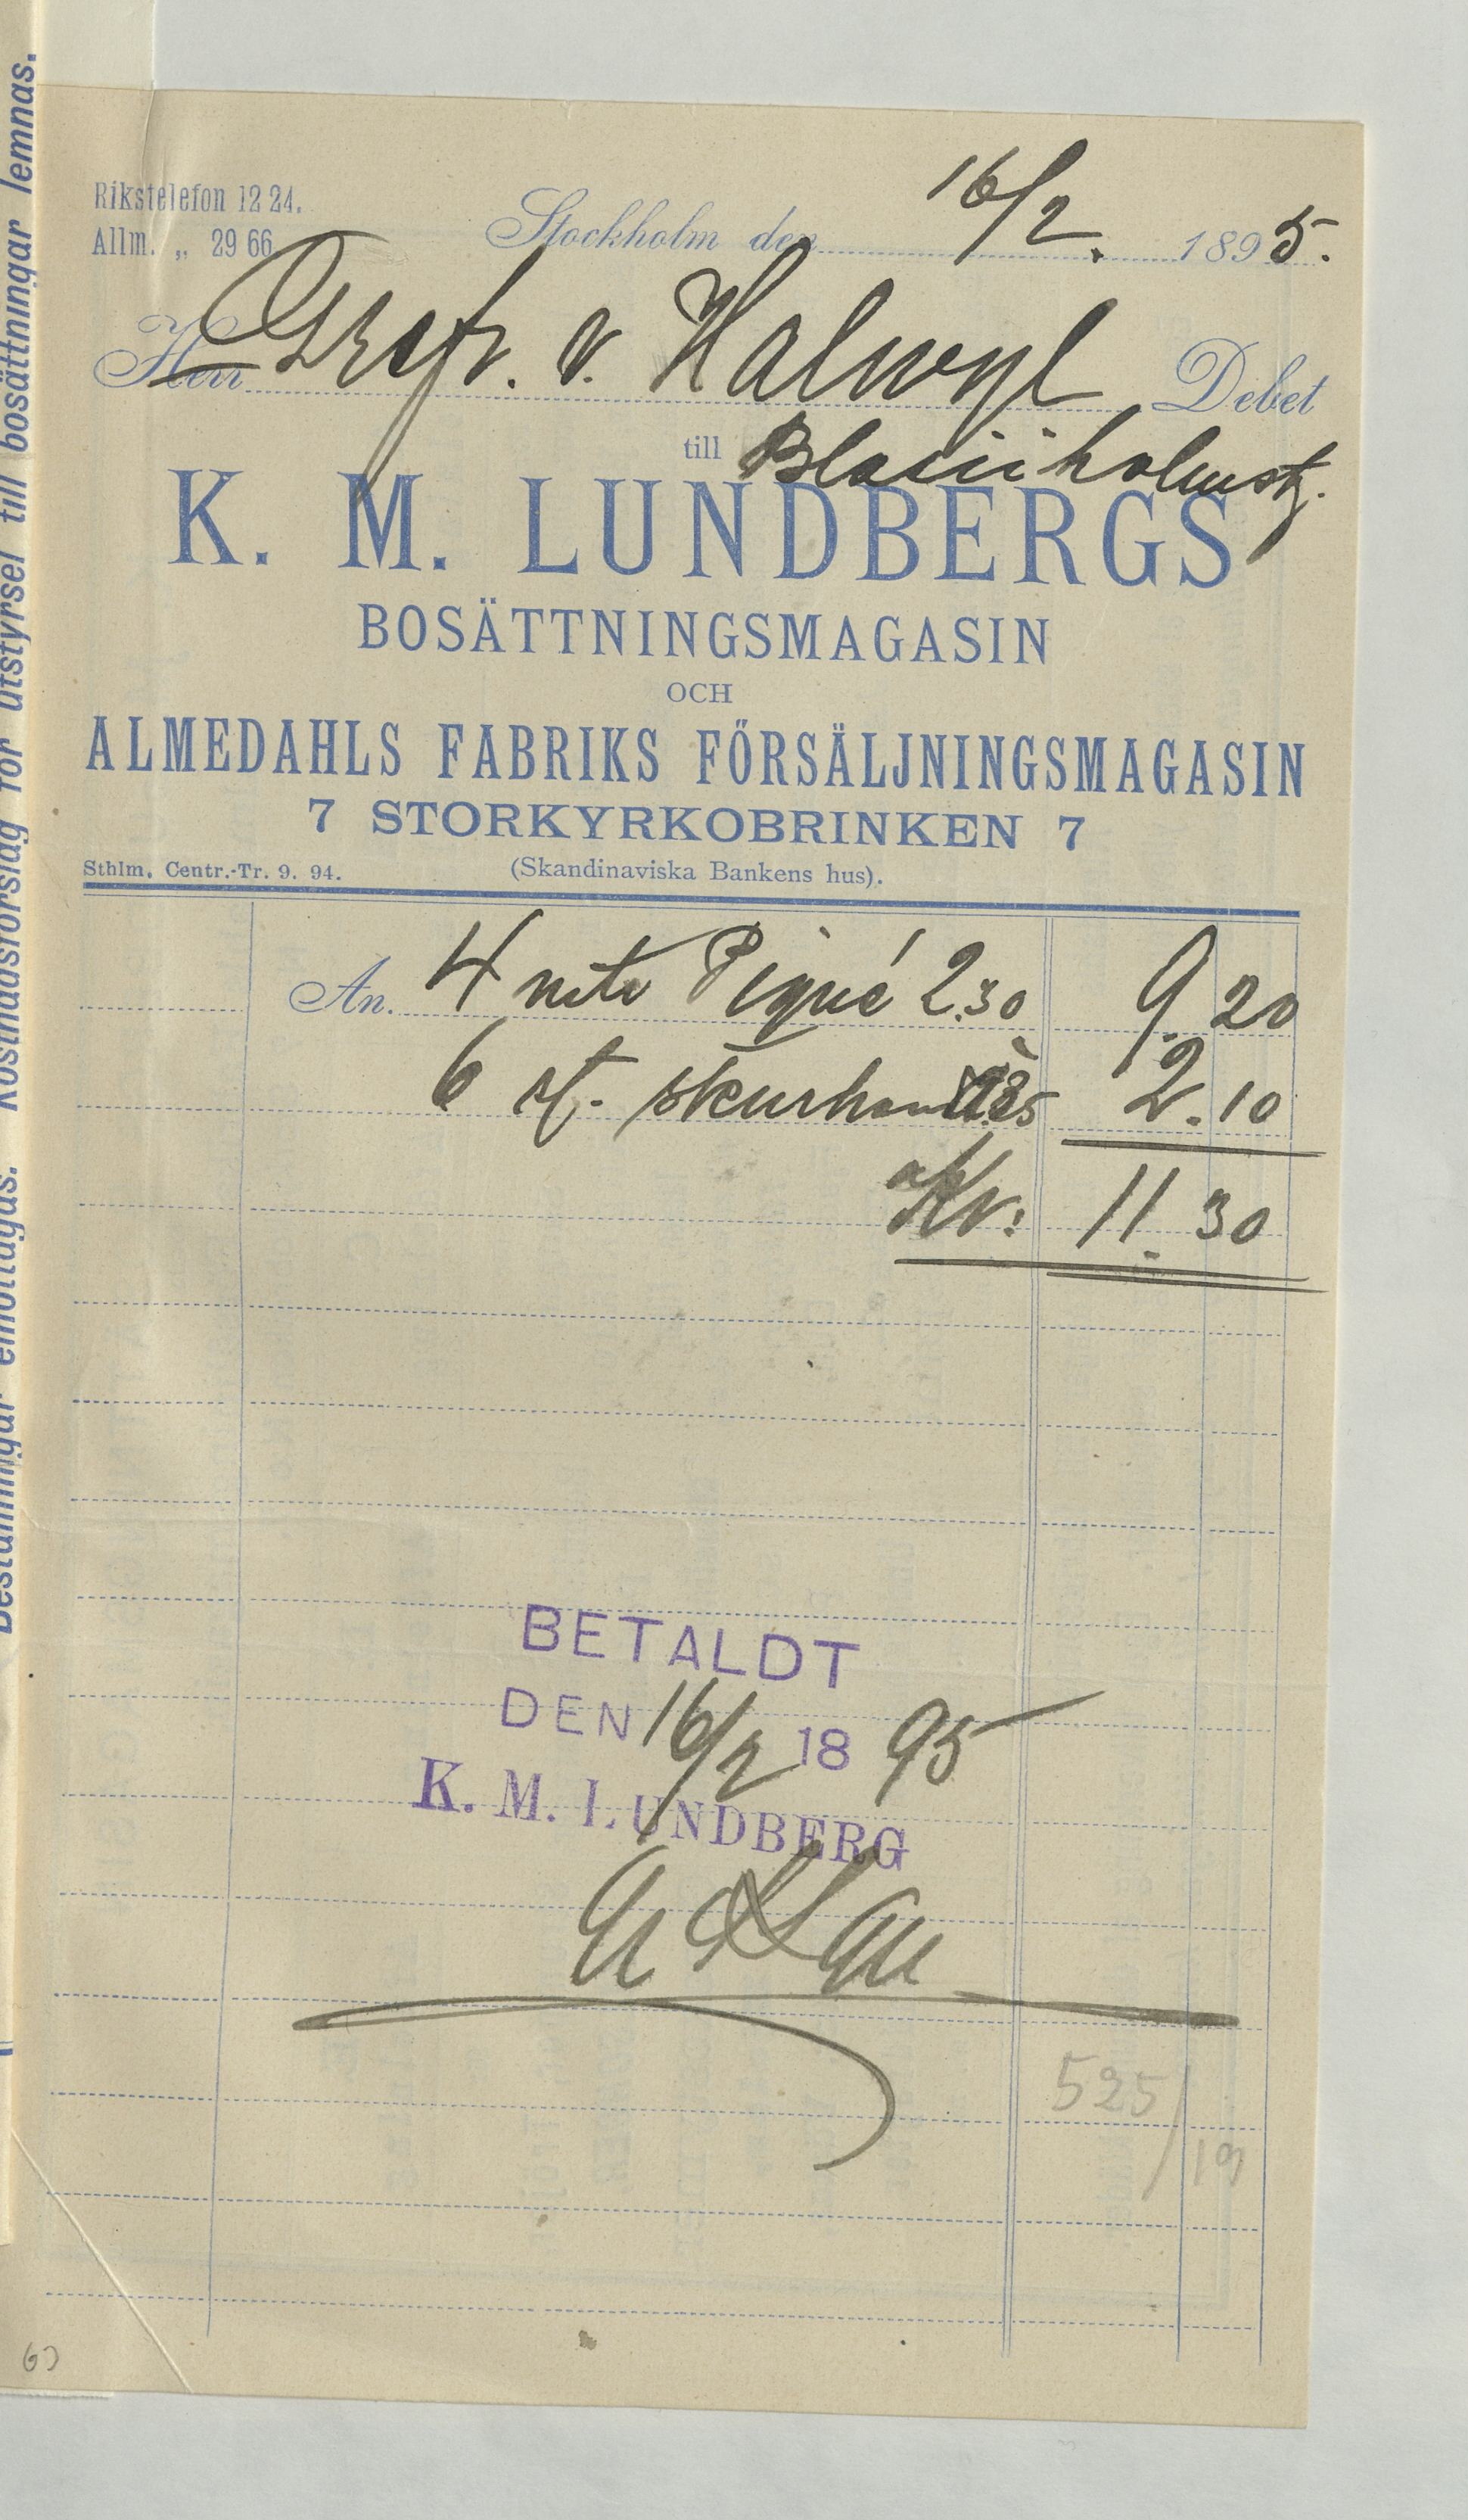 Rikstelefon 12 24.
Allm. „ 29 66
Stockholm den 16/2. 1895.
Herr Grefv. v. Halwyl Debet
till Blasiiholmstg.
K. M. LUNDBERGS
BOSÄTTNINGSMAGASIN
OCH
ALMEDAHLS FABRIKS FÖRSÄLJNINGSMAGASIN
7 STORKYRKOBRINKEN 7
Sthlm. Centr.-Tr. 9. 94. (Skandinaviska Bankens hus).
An. 4 mtr Piqué 2.30 9.20
6 st. skurhandd 35 2.10
Kr: 11.30
BETALDT
DEN 16/2 18 95
K. M. LUNDBERG
525/19
Beställningar emottagas. Kostnadsförslag för utstyrsel till bosättningar lemnas.